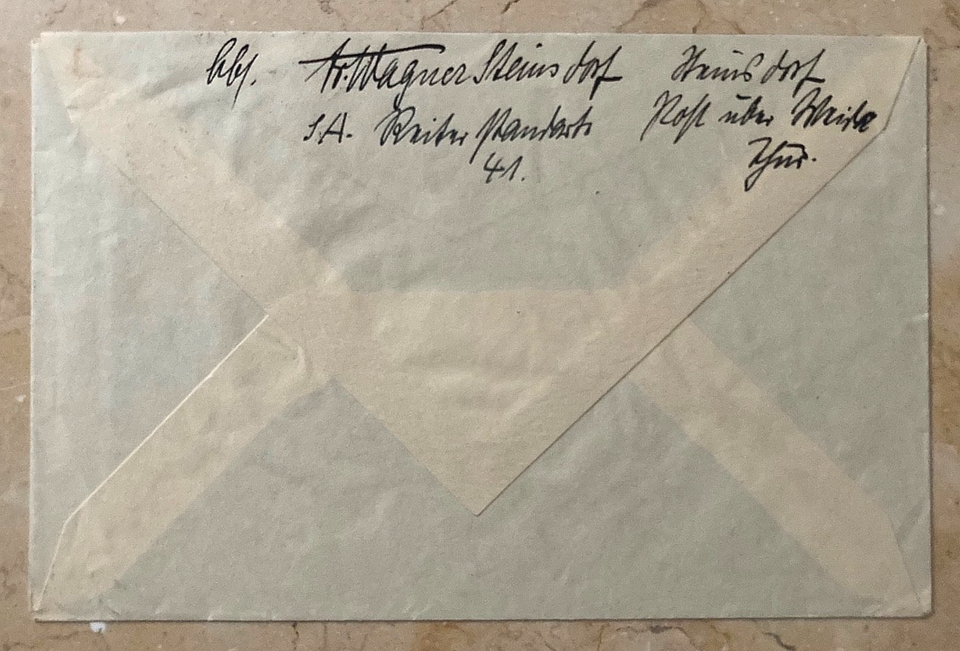 Abs. Fr. Wagner Steinsdorf Steinsdorf
S.A. Reiterstandarte Post über Weida
41. Thür.